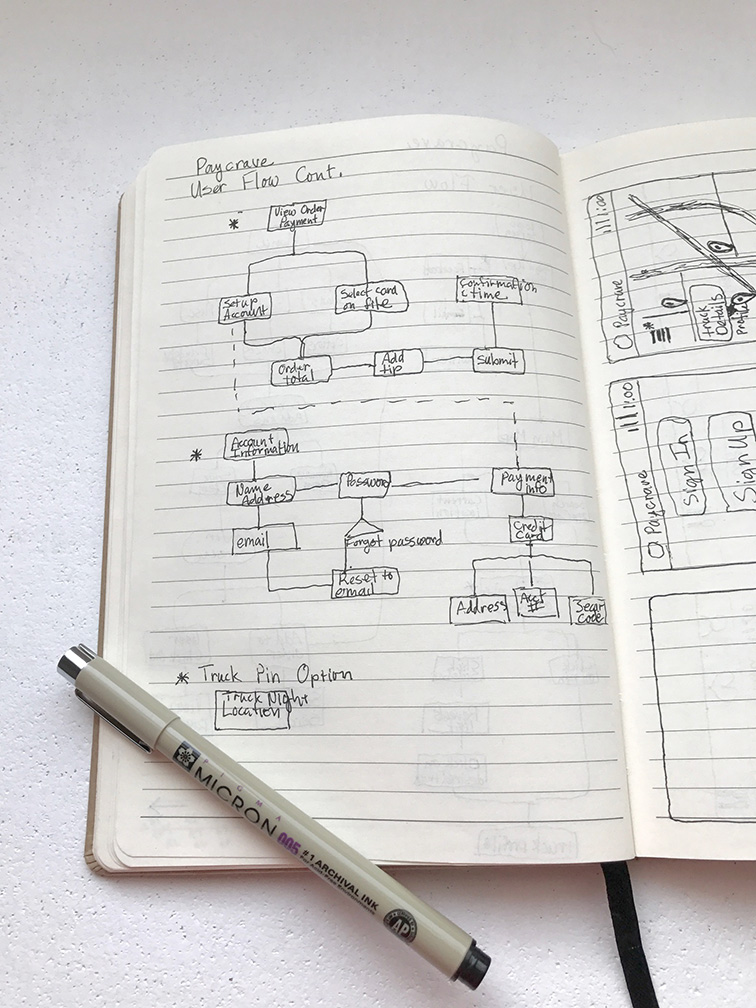 Paycrave
User Flow Cont.
*
View Order
Payment
Setup
Account
Select card
on file
Confirmation
& time
Order
total
Add
tip
Submit
*
Account
Information
Name
Address
Password
Payment
info
email
Forgot password
Credit
Card
Reset to
email
Address
Acct
#
Secur
Code
* Truck Pin Option
Truck Night
Location
PIGMA
MICRON 005
#1 ARCHIVAL INK
AP
Paycrave
11:00
Truck
Details
Profile
Paycrave
11:00
Sign In
Sign Up